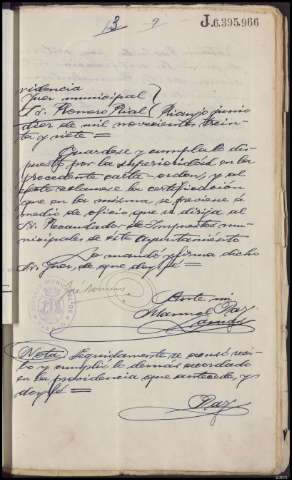 13 9
J.6.395.966
Providencia
Juez municipal
Sr. Romero Rial Rianjo junio
diez de mil novecientos trein-
ta y siete =
Guardese y cumplase lo dis-
puesto por la superioridad en la
precedente carta-orden, y al
efecto reclamese la certificación
que en la misma se previene por
medio de oficio que se dirija al
Sr. Recaudador de Impuestos mu-
nicipales de este Ayuntamiento
Lo mandó y firma dicho
Sr. Juez, de que doy fé =
José Romero
Ante mi
Manuel Paz
Nota) Seguidamente se acusó reci-
bo y cumplió lo demas acordado
en la providencia que antecede, y
doy fé =
Paz